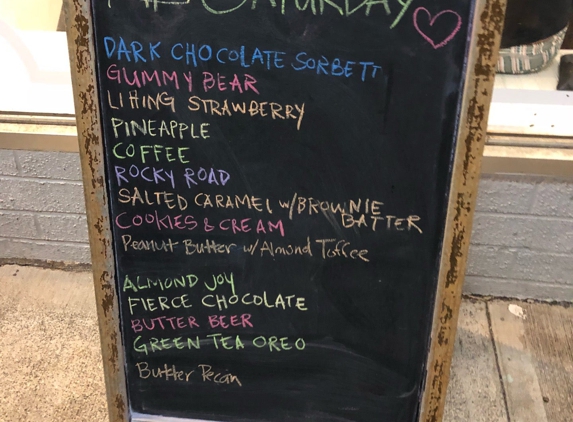 SATURDAY
DARK CHOCOLATE SORBETT
GUMMY BEAR
LIHING STRAWBERRY
PINEAPPLE
COFFEE
ROCKY ROAD
SALTED CARAMEL w/BROWNIE
BATTER
COOKIES & CREAM
Peanut Butter w/Almond Toffee
ALMOND JOY
FIERCE CHOCOLATE
BUTTER BEER
GREEN TEA OREO
Butter Pecan